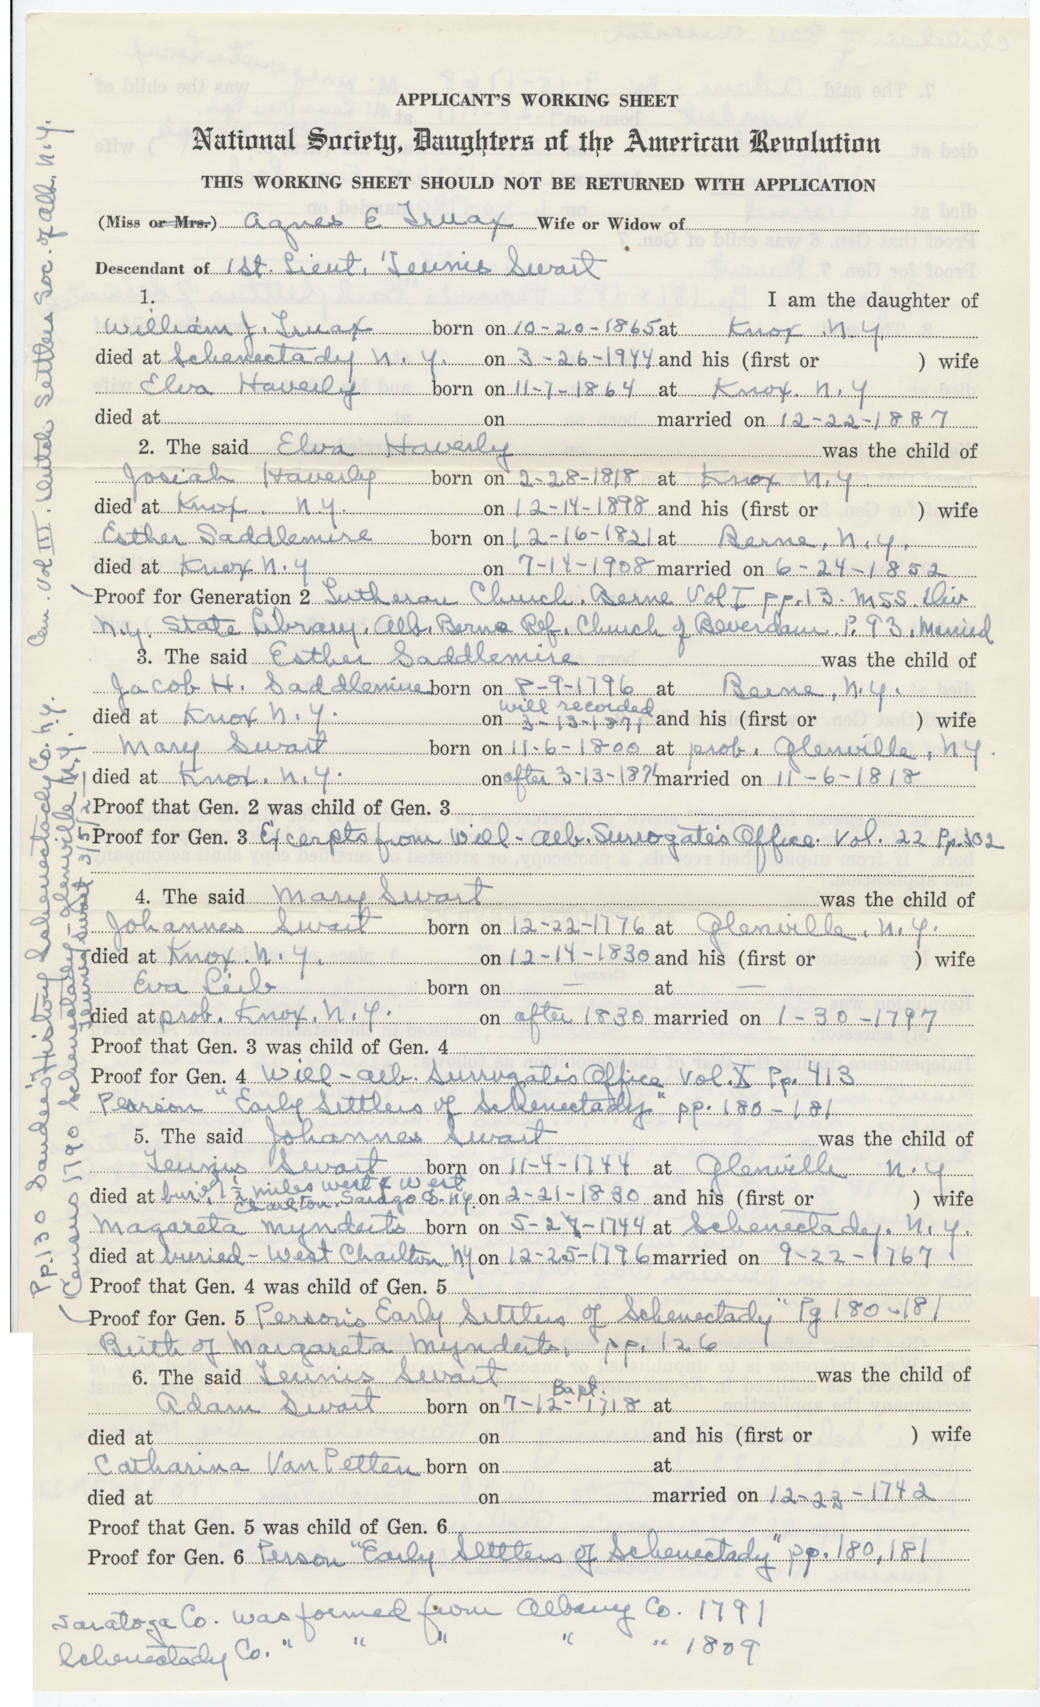 APPLICANT'S WORKING SHEET
National Society, Daughters of the American Revolution
THIS WORKING SHEET SHOULD NOT BE RETURNED WITH APPLICATION
(Miss or Mrs.) Agnes E Truax Wife or Widow of
Descendant of 1st. Lieut. Teunis Swart
1. I am the daughter of
William J. Truax born on 10-20-1865 at Knox N.Y.
died at Schenectady N.Y. on 3-26-1944 and his (first or ) wife
Elva Haverly born on 11-7-1864 at Knox. N.Y
died at on married on 12-22-1887
2. The said Elva Haverly was the child of
Josiah Haverly born on 2-28-1818 at Knox N.Y
died at Knox. N.Y. on 12-14-1898 and his (first or ) wife
Esther Saddlemire born on 12-16-1821 at Berne, N.Y.
died at Knox N.Y on 7-14-1908 married on 6-24-1852
Proof for Generation 2 Lutheran Church. Berne Vol I pp. 13 - MSS. Div
N.Y. State Library. Alb. Berne Ref. Church of Beverdam P. 93. Married
3. The said Esther Saddlemire was the child of
Jacob H. Saddlemire born on 8-9-1796 at Berne, N.Y.
will recorded
died at Knox N.Y. on 3-13-1871 and his (first or ) wife
Mary Swart born on 11-6-1800 at prob. Glenville, NY.
died at Knox. N.Y. on after 3-13-1871 married on 11-6-1818
Proof that Gen. 2 was child of Gen. 3
Proof for Gen. 3 Excerpts from Will - Alb. Surrogate's Office. Vol. 22 Pp. 302
4. The said Mary Swart was the child of
Johannes Swart born on 12-22-1776 at Glenville, N.Y.
died at Knox. N.Y. on 12-14-1830 and his (first or ) wife
Eva Leib born on — at —
died at prob. Knox. N.Y. on after 1830 married on 1-30-1797
Proof that Gen. 3 was child of Gen. 4
Proof for Gen. 4 Will - Alb. Surrogate's Office Vol. X Pp. 413
Pearson "Early Settlers of Schenectady" pp. 180-181
5. The said Johannes Swart was the child of
Teunis Swart born on 11-4-1744 at Glenville N.Y
died at buried 1 1/2 miles west of West
Charlton. Saratoga Co. N.Y. on 2-21-1830 and his (first or ) wife
Magareta Mynderts born on 5-27-1744 at Schenectady. N.Y.
died at buried - West Charlton NY on 12-25-1796 married on 9-22-1767
Proof that Gen. 4 was child of Gen. 5
Proof for Gen. 5 Person's Early Settlers of Schenectady" Pg 180-181
Birth of Margareta Mynderts, pp. 126
6. The said Teunis Swart was the child of
Bapt.
Adam Swart born on 7-12-1718 at
died at on and his (first or ) wife
Catharina Van Petten born on at
died at on married on 12-23-1742
Proof that Gen. 5 was child of Gen. 6
Proof for Gen. 6 Person "Early Settlers of Schenectady" pp. 180, 181
Saratoga Co. was formed from Albany Co. 1791
Schenectady Co. " " " " " 1809
Cem. Vol III. Dutch Settlers Soc. of Alb. N.Y.
Pp. 130 Sanders "History Schenectady Co. N.Y.
Census 1790 Schenectady - Glenville N.Y.
Teunis Swart 3/5/2/-1